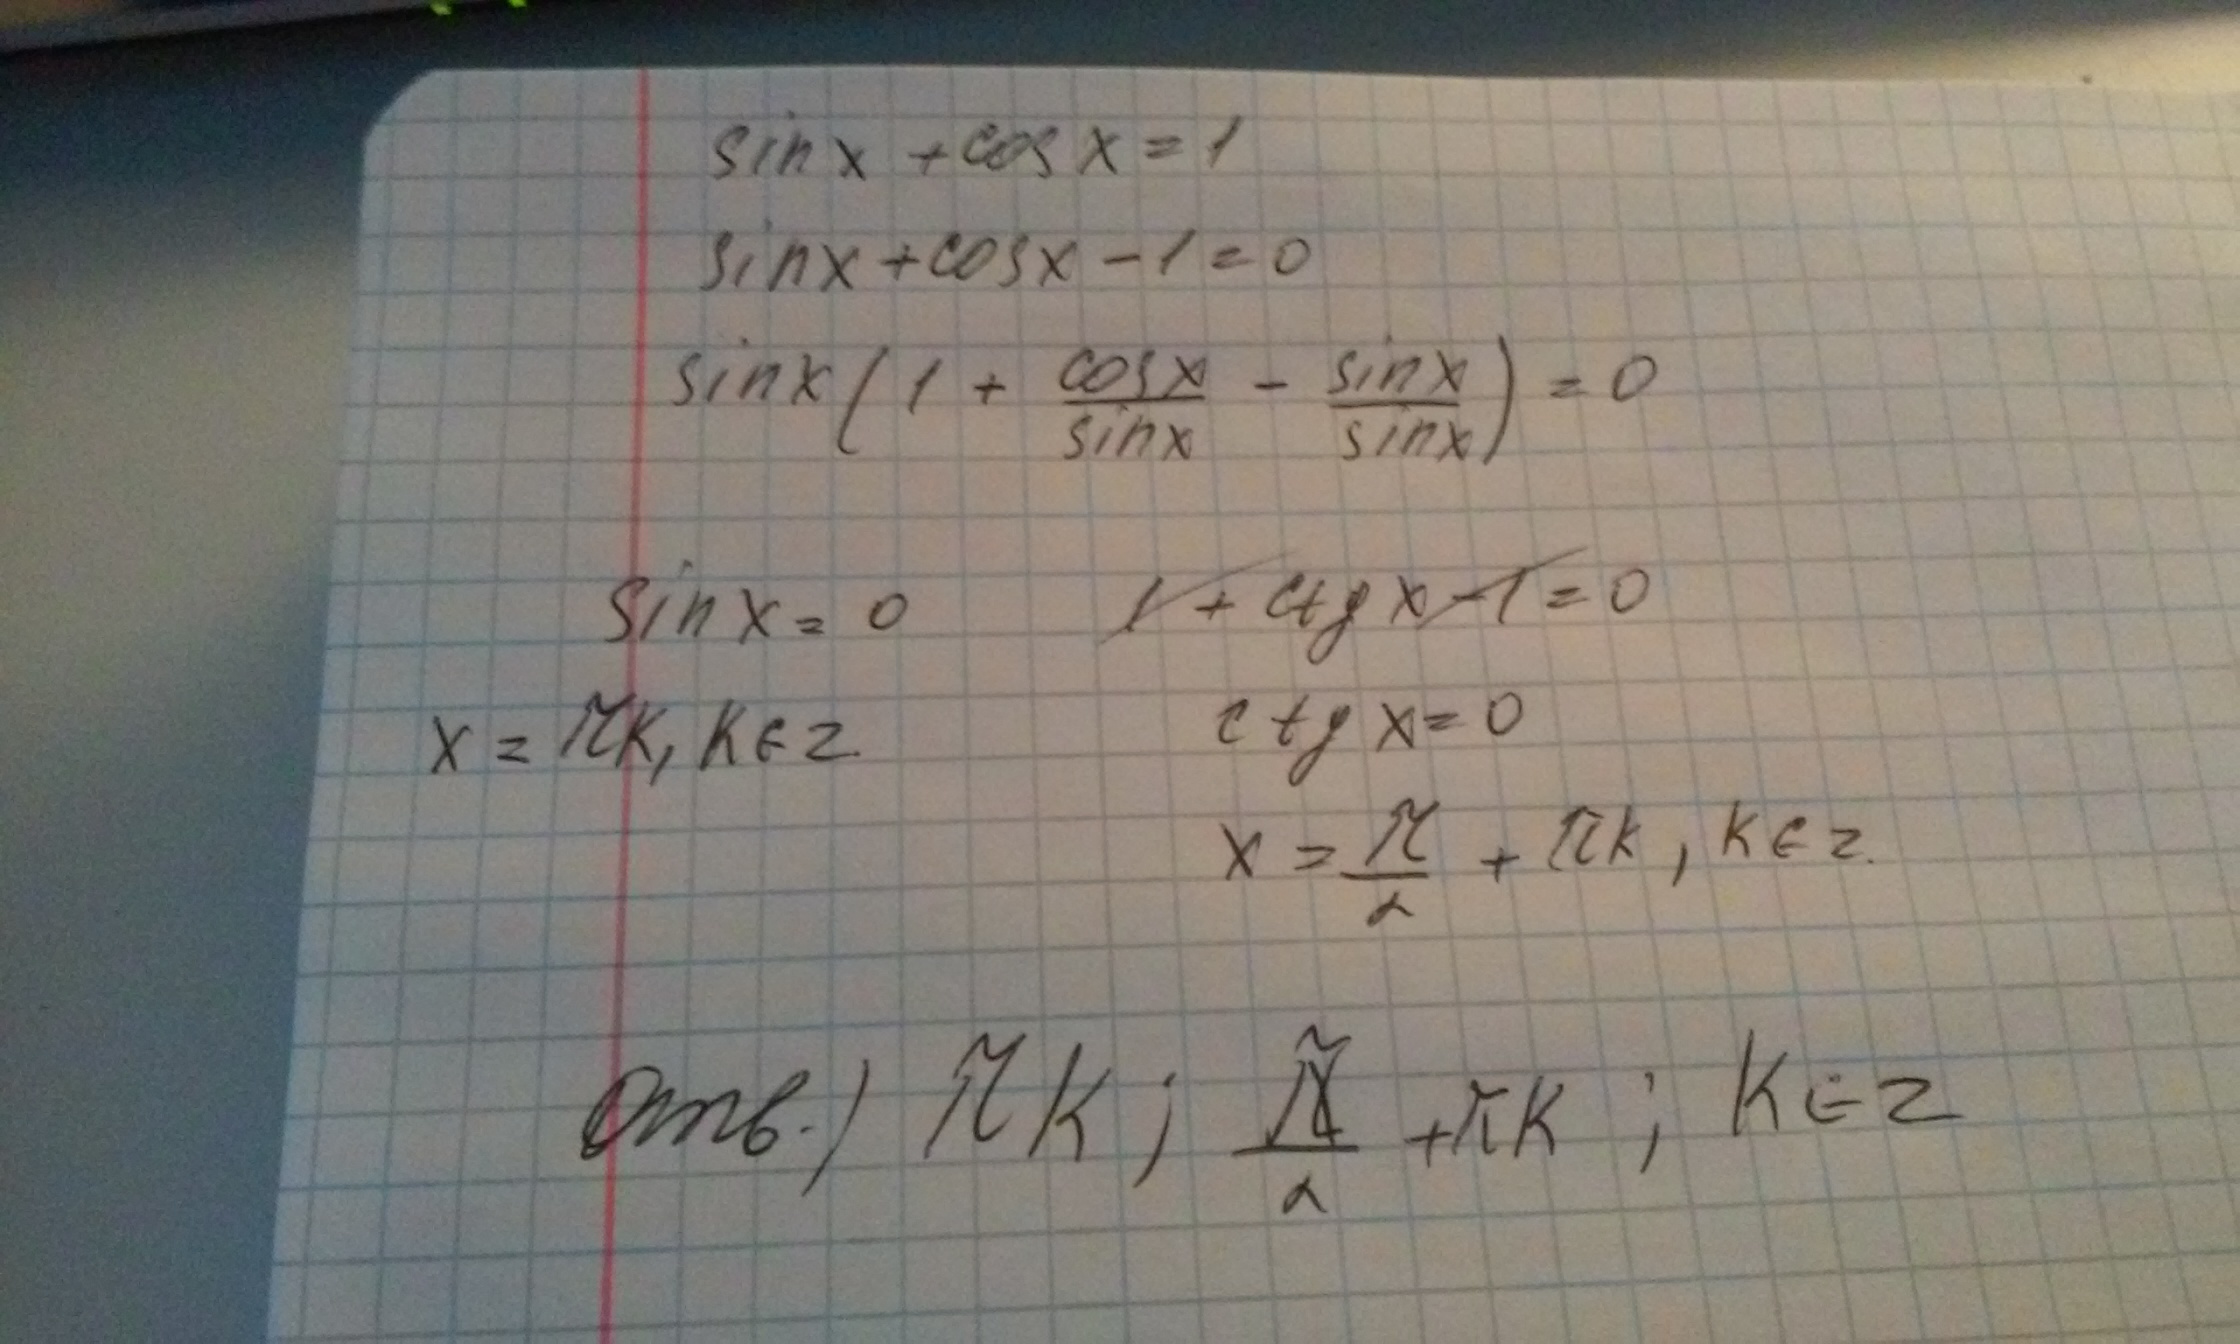 sinx + cosx = 1
sinx + cosx - 1 = 0
sinx(1 + cosx/sinx - sinx/sinx) = 0
sinx = 0 1 + ctgx - 1 = 0
x = πk, k∈z. ctgx = 0
x = π/2 + πk, k∈z.
Отв.) πk; π/2 + πk; k∈z